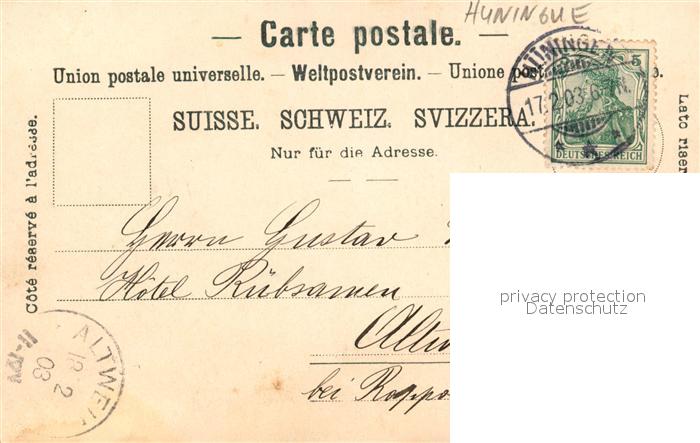 HUNINGUE
— Carte postale. —
Union postale universelle. – Weltpostverein. – Unione post
SUISSE. SCHWEIZ. SVIZZERA.
Nur für die Adresse.
Côté réservé à l'adresse.
Lato riser
HÜNINGEN
17.2.03.6
5
DEUTSCHES REICH
Herrn Gustav
Hôtel Rübsamen
Altw
bei Roppo
ALTWEI
18 2
03
privacy protection
Datenschutz